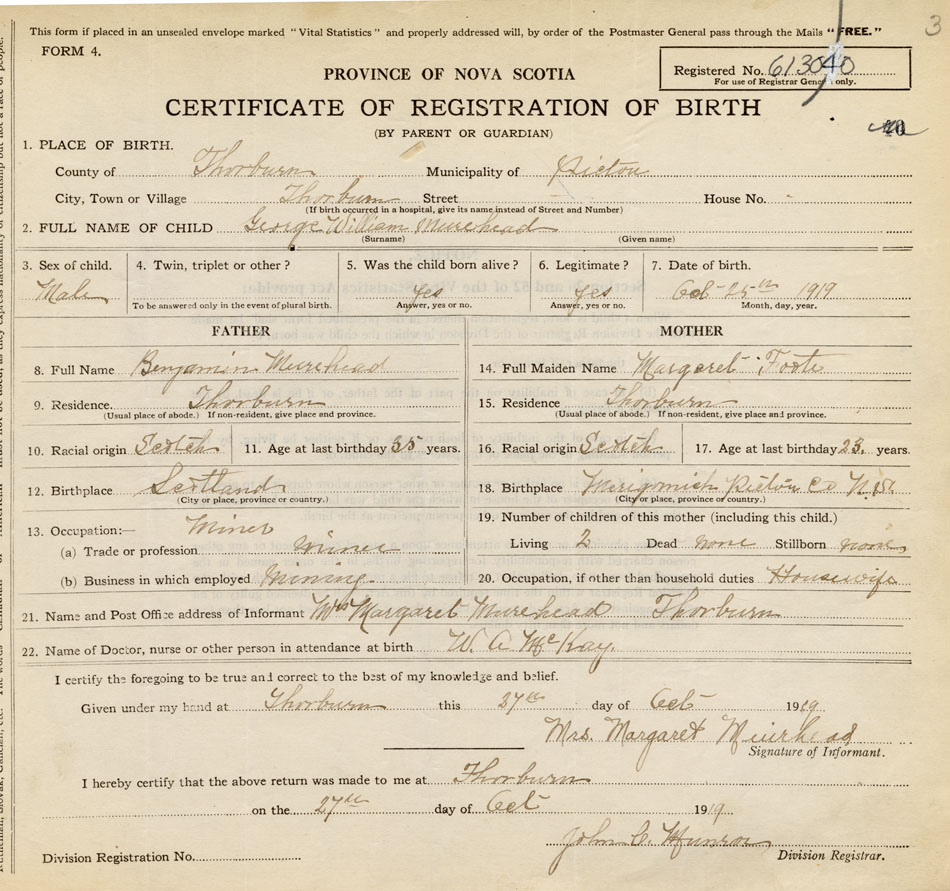 3
This form if placed in an unsealed envelope marked "Vital Statistics" and properly addressed will, by order of the Postmaster General pass through the Mails "FREE."
FORM 4.
Registered No. 613040
For use of Registrar General only.
PROVINCE OF NOVA SCOTIA
CERTIFICATE OF REGISTRATION OF BIRTH
(BY PARENT OR GUARDIAN)
1. PLACE OF BIRTH.
County of Thorburn Municipality of Pictou
City, Town or Village Thorburn Street House No.
(If birth occurred in a hospital, give its name instead of Street and Number)
2. FULL NAME OF CHILD George William Muirehead
(Surname) (Given name)
3. Sex of child. 4. Twin, triplet or other? 5. Was the child born alive? 6. Legitimate? 7. Date of birth.
Male Yes Yes Oct 25th 1919
To be answered only in the event of plural birth. Answer, yes or no. Answer, yes or no. Month, day, year.
FATHER MOTHER
8. Full Name Benjamin Muirehead 14. Full Maiden Name Margaret Foote
9. Residence. Thorburn 15. Residence Thorburn
(Usual place of abode.) If non-resident, give place and province. (Usual place of abode.) If non-resident, give place and province.
10. Racial origin Scotch 11. Age at last birthday 35 years. 16. Racial origin Scotch 17. Age at last birthday 23 years.
12. Birthplace Scotland 18. Birthplace Merigomish Pictou Co N.S.
(City or place, province or country.) (City or place, province or country.)
13. Occupation:— Miner 19. Number of children of this mother (including this child.)
(a) Trade or profession Miner Living 2 Dead none Stillborn none
(b) Business in which employed Mining 20. Occupation, if other than household duties Housewife
21. Name and Post Office address of Informant Mrs Margaret Muirehead Thorburn
22. Name of Doctor, nurse or other person in attendance at birth W. A McKay.
I certify the foregoing to be true and correct to the best of my knowledge and belief.
Given under my hand at Thorburn this 27th day of Oct 1919
Mrs. Margaret Muirhead
Signature of Informant.
I hereby certify that the above return was made to me at Thorburn
on the 27th day of Oct 1919
John C. Munroe
Division Registration No. Division Registrar.